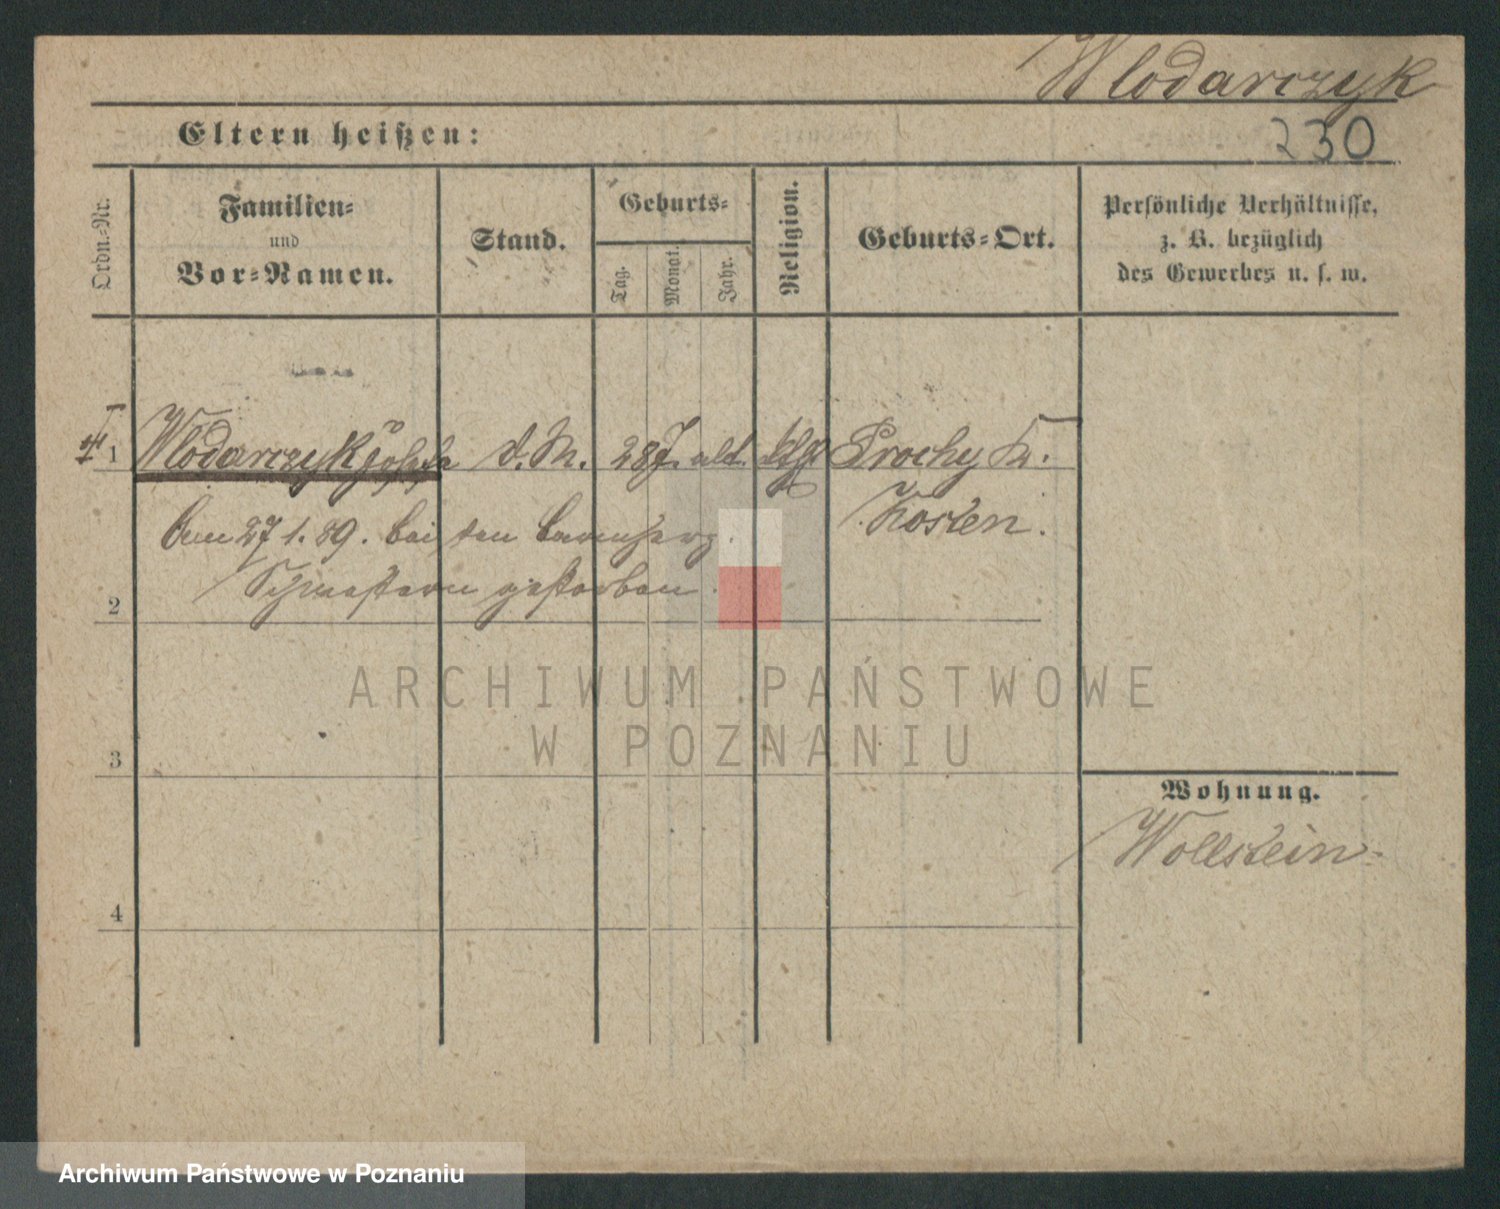 Wlodarczyk
Eltern heißen:
230
Ordn.-Nr.
Familien-
und
Vor-Namen.
Stand.
Geburts-
Tag.
Monat.
Jahr.
Religion.
Geburts-Ort.
Persönliche Verhältnisse,
z. B. bezüglich
des Gewerbes u. s. w.
1 Wlodarczyk Josefa d. M. 28 J. alt kth Prochy Kr.
Kosten.
am 27/1.89. bei den barmherz.
2 Schwestern gestorben.
ARCHIWUM PAŃSTWOWE
W POZNANIU
3
Wohnung.
Wollstein
4
Archiwum Państwowe w Poznaniu